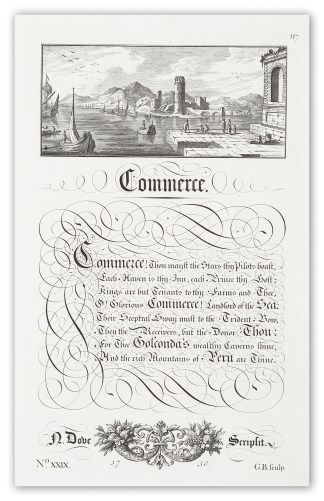 117
Commerce.
Commerce! Thou mayst the Stars thy Pilots boast,
Each Haven is thy Inn, each Prince thy Host:
Kings are but Tenants to thy Farms and Thee,
O! Glorious Commerce! Landlord of the Sea:
Their Sceptral Sway must to the Trident Bow,
They the Receivers, but the Donor Thou:
For Thee Golconda's wealthy Caverns shine,
And the rich Mountains of Peru are Thine.
N. Dove Scripsit.
No. XXIX. 17 38 G.B. sculp